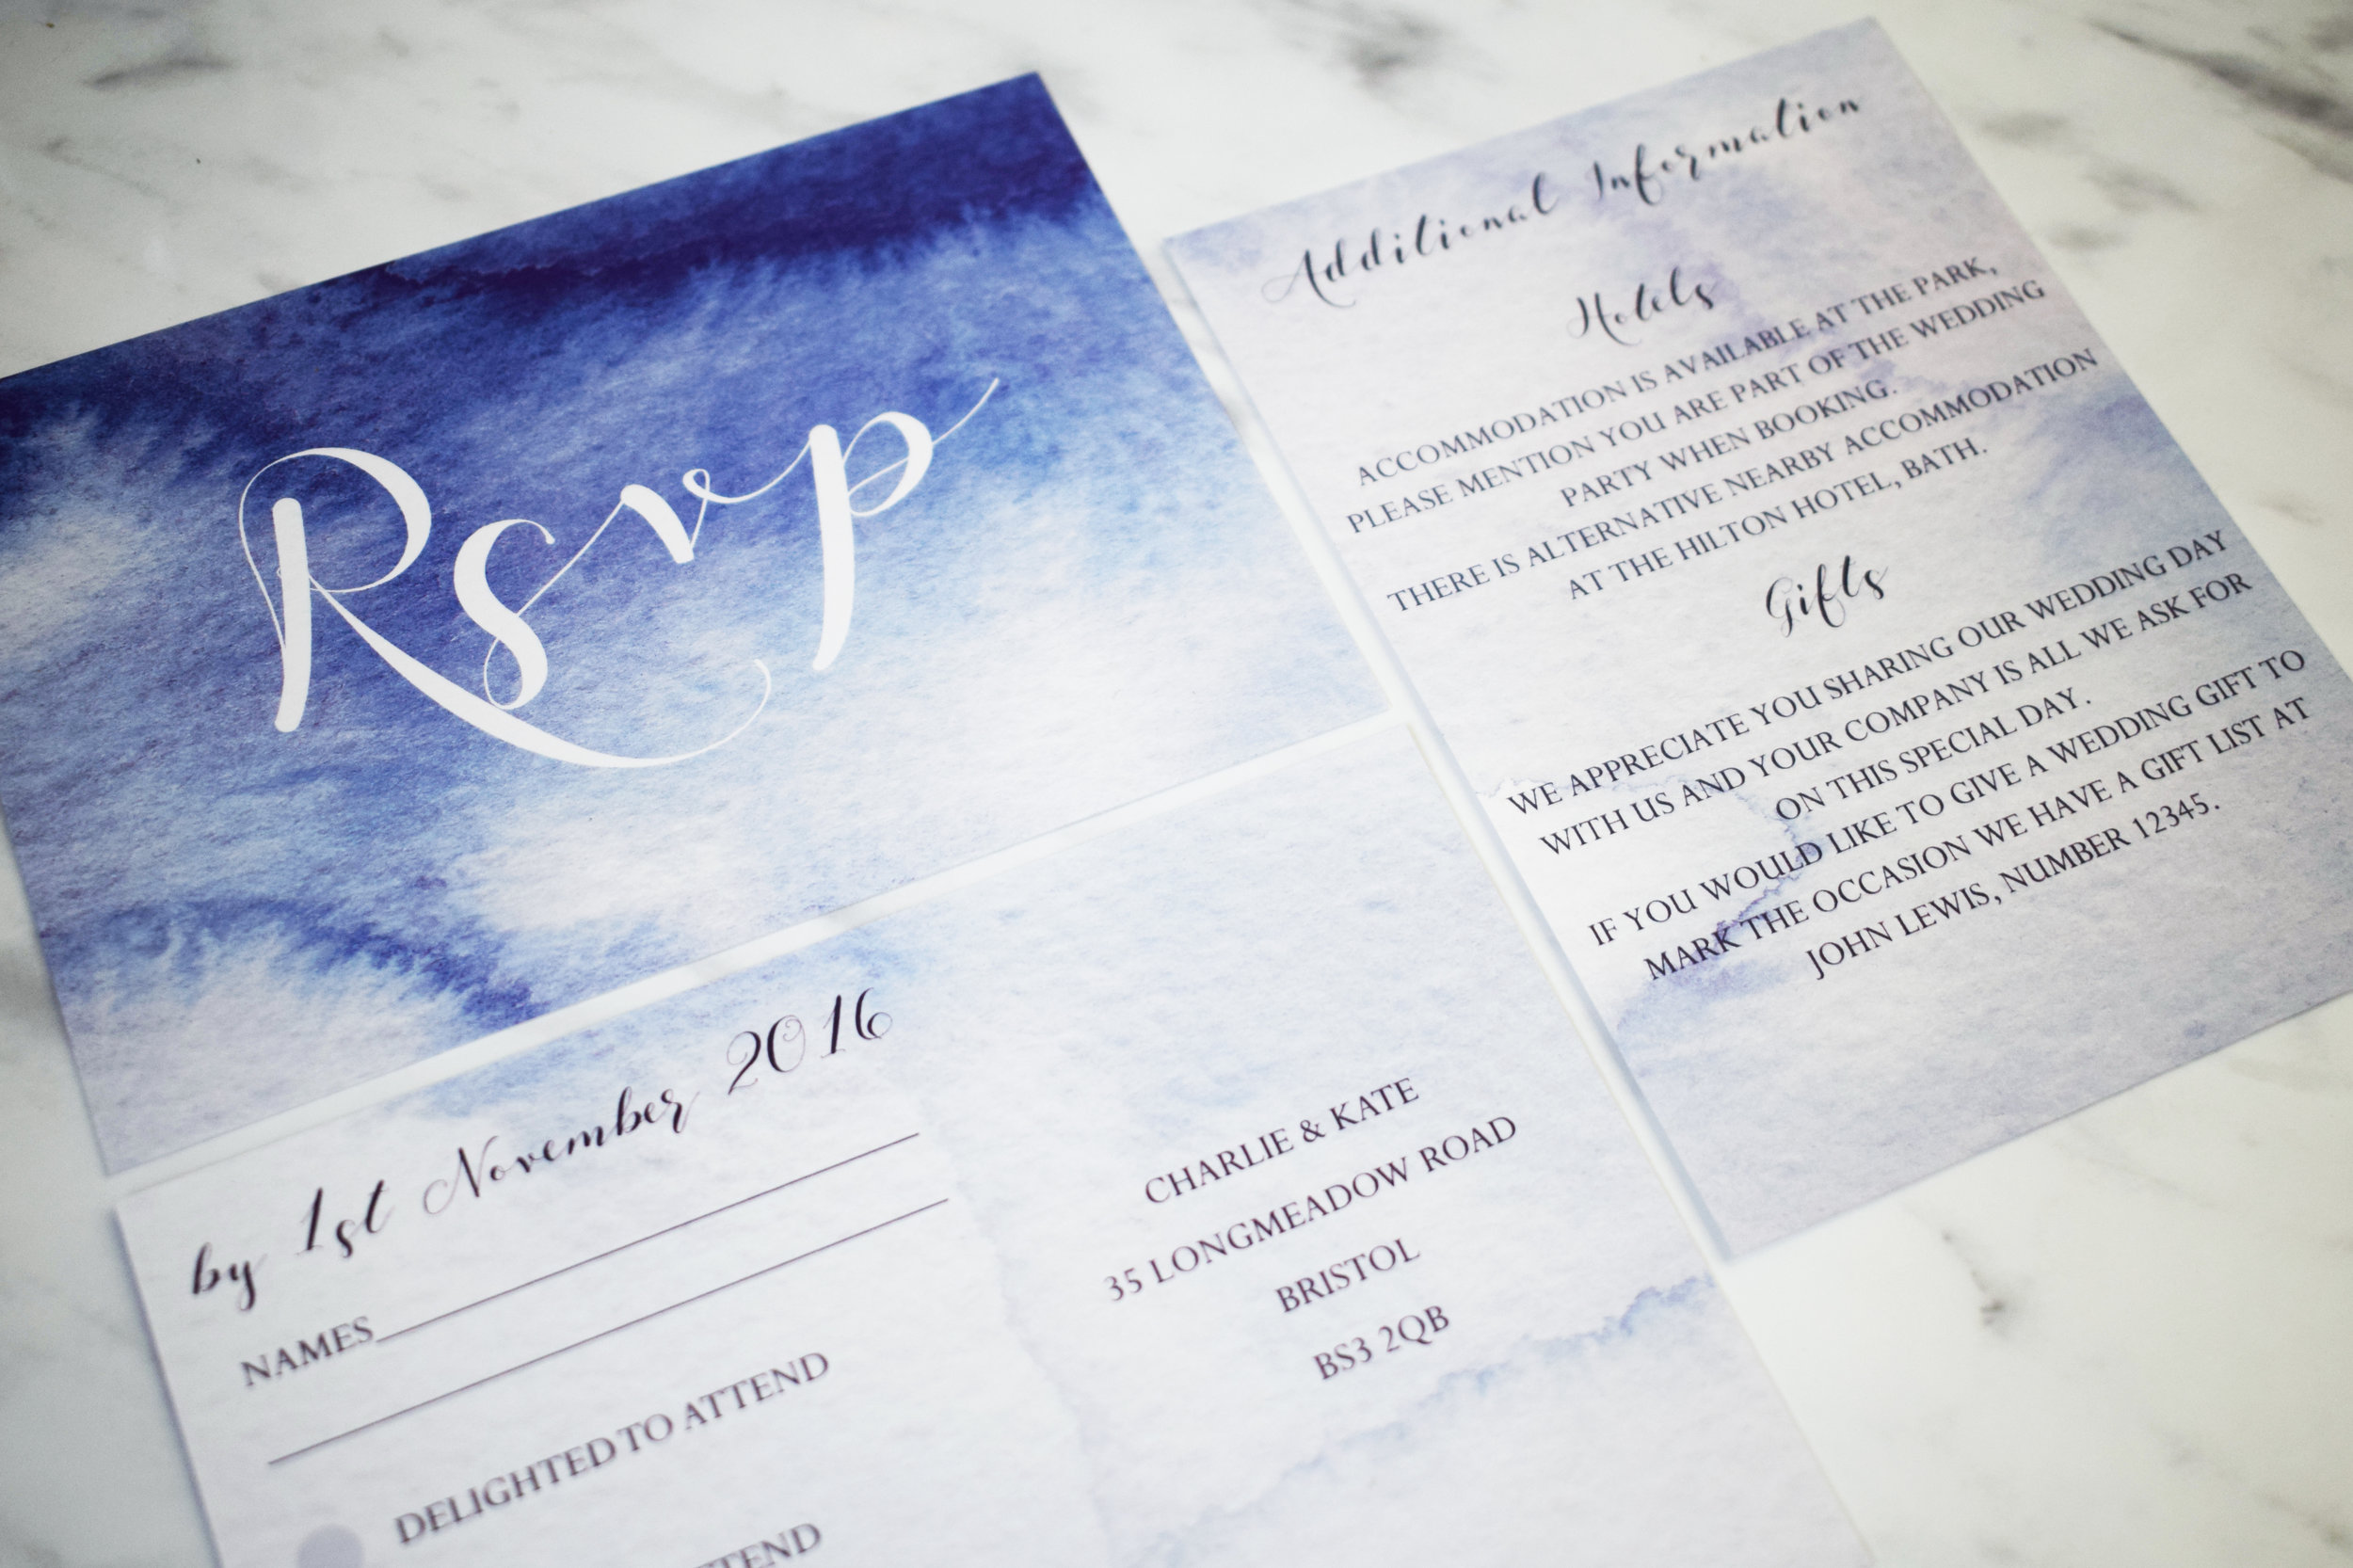 Rsvp
by 1st November 2016
NAMES
DELIGHTED TO ATTEND
CHARLIE & KATE
35 LONGMEADOW ROAD
BRISTOL
BS3 2QB
Additional Information
Hotels
ACCOMMODATION IS AVAILABLE AT THE PARK,
PLEASE MENTION YOU ARE PART OF THE WEDDING
PARTY WHEN BOOKING.
THERE IS ALTERNATIVE NEARBY ACCOMMODATION
AT THE HILTON HOTEL, BATH.
Gifts
WE APPRECIATE YOU SHARING OUR WEDDING DAY
WITH US AND YOUR COMPANY IS ALL WE ASK FOR
ON THIS SPECIAL DAY.
IF YOU WOULD LIKE TO GIVE A WEDDING GIFT TO
MARK THE OCCASION WE HAVE A GIFT LIST AT
JOHN LEWIS, NUMBER 12345.